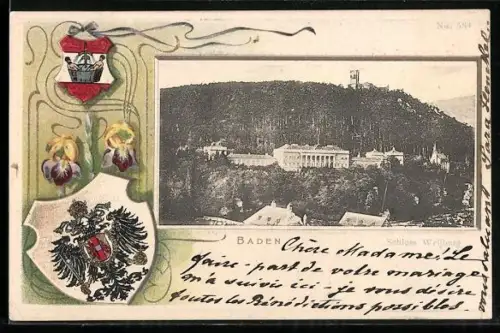 No. 584
BADEN
Schloss Weilburg
Chère Madame! Le
faire-part de votre mariage
m'a suivie ici - je vous désire
toutes les Bénédictions possibles.